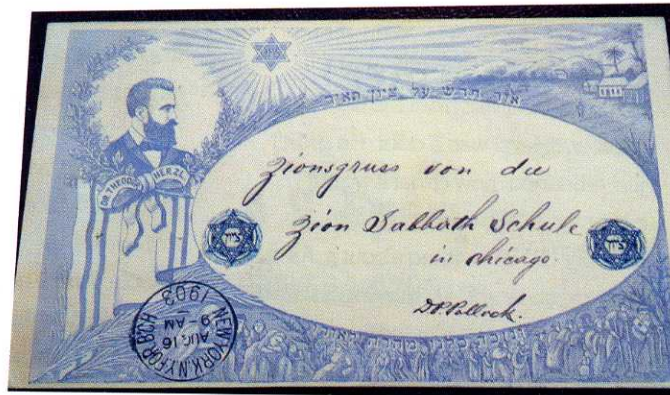 אור חדש על ציון תאיר
DR. THEODOR HERZL
Zionsgruss von die
Zion Sabbath Schule
in Chicago.
D.P. Pollock.
ציון
ציון
NEW YORK, N.Y. FOR. B'CH
AUG 16
9-AM
1903